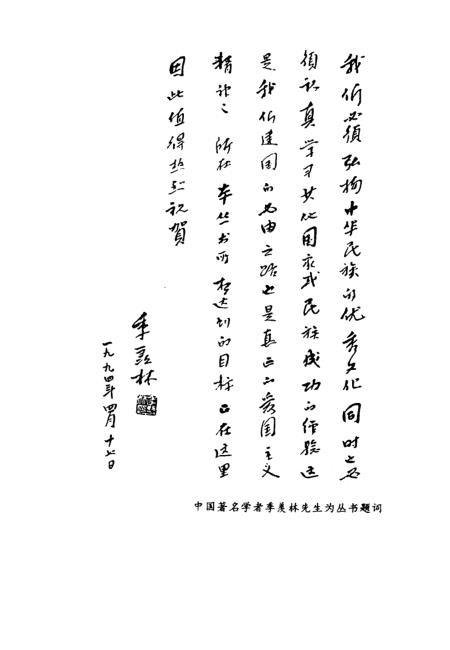 我们必须弘扬中华民族的优秀文化同时也必
须认真学习其他国家或民族成功的经验这
是我们建国的必由之路也是真正的爱国主义
精神之所在本丛书所想达到的目标正在这里
因此值得热烈祝贺
季羡林
一九九四年四月十七日
中国著名学者季羡林先生为丛书题词